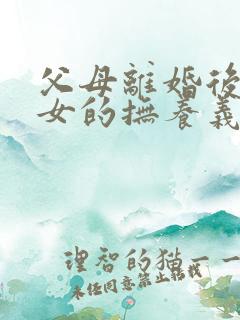 父母離婚後
女的撫養義
理智的猫一一
未任同意禁止轉載